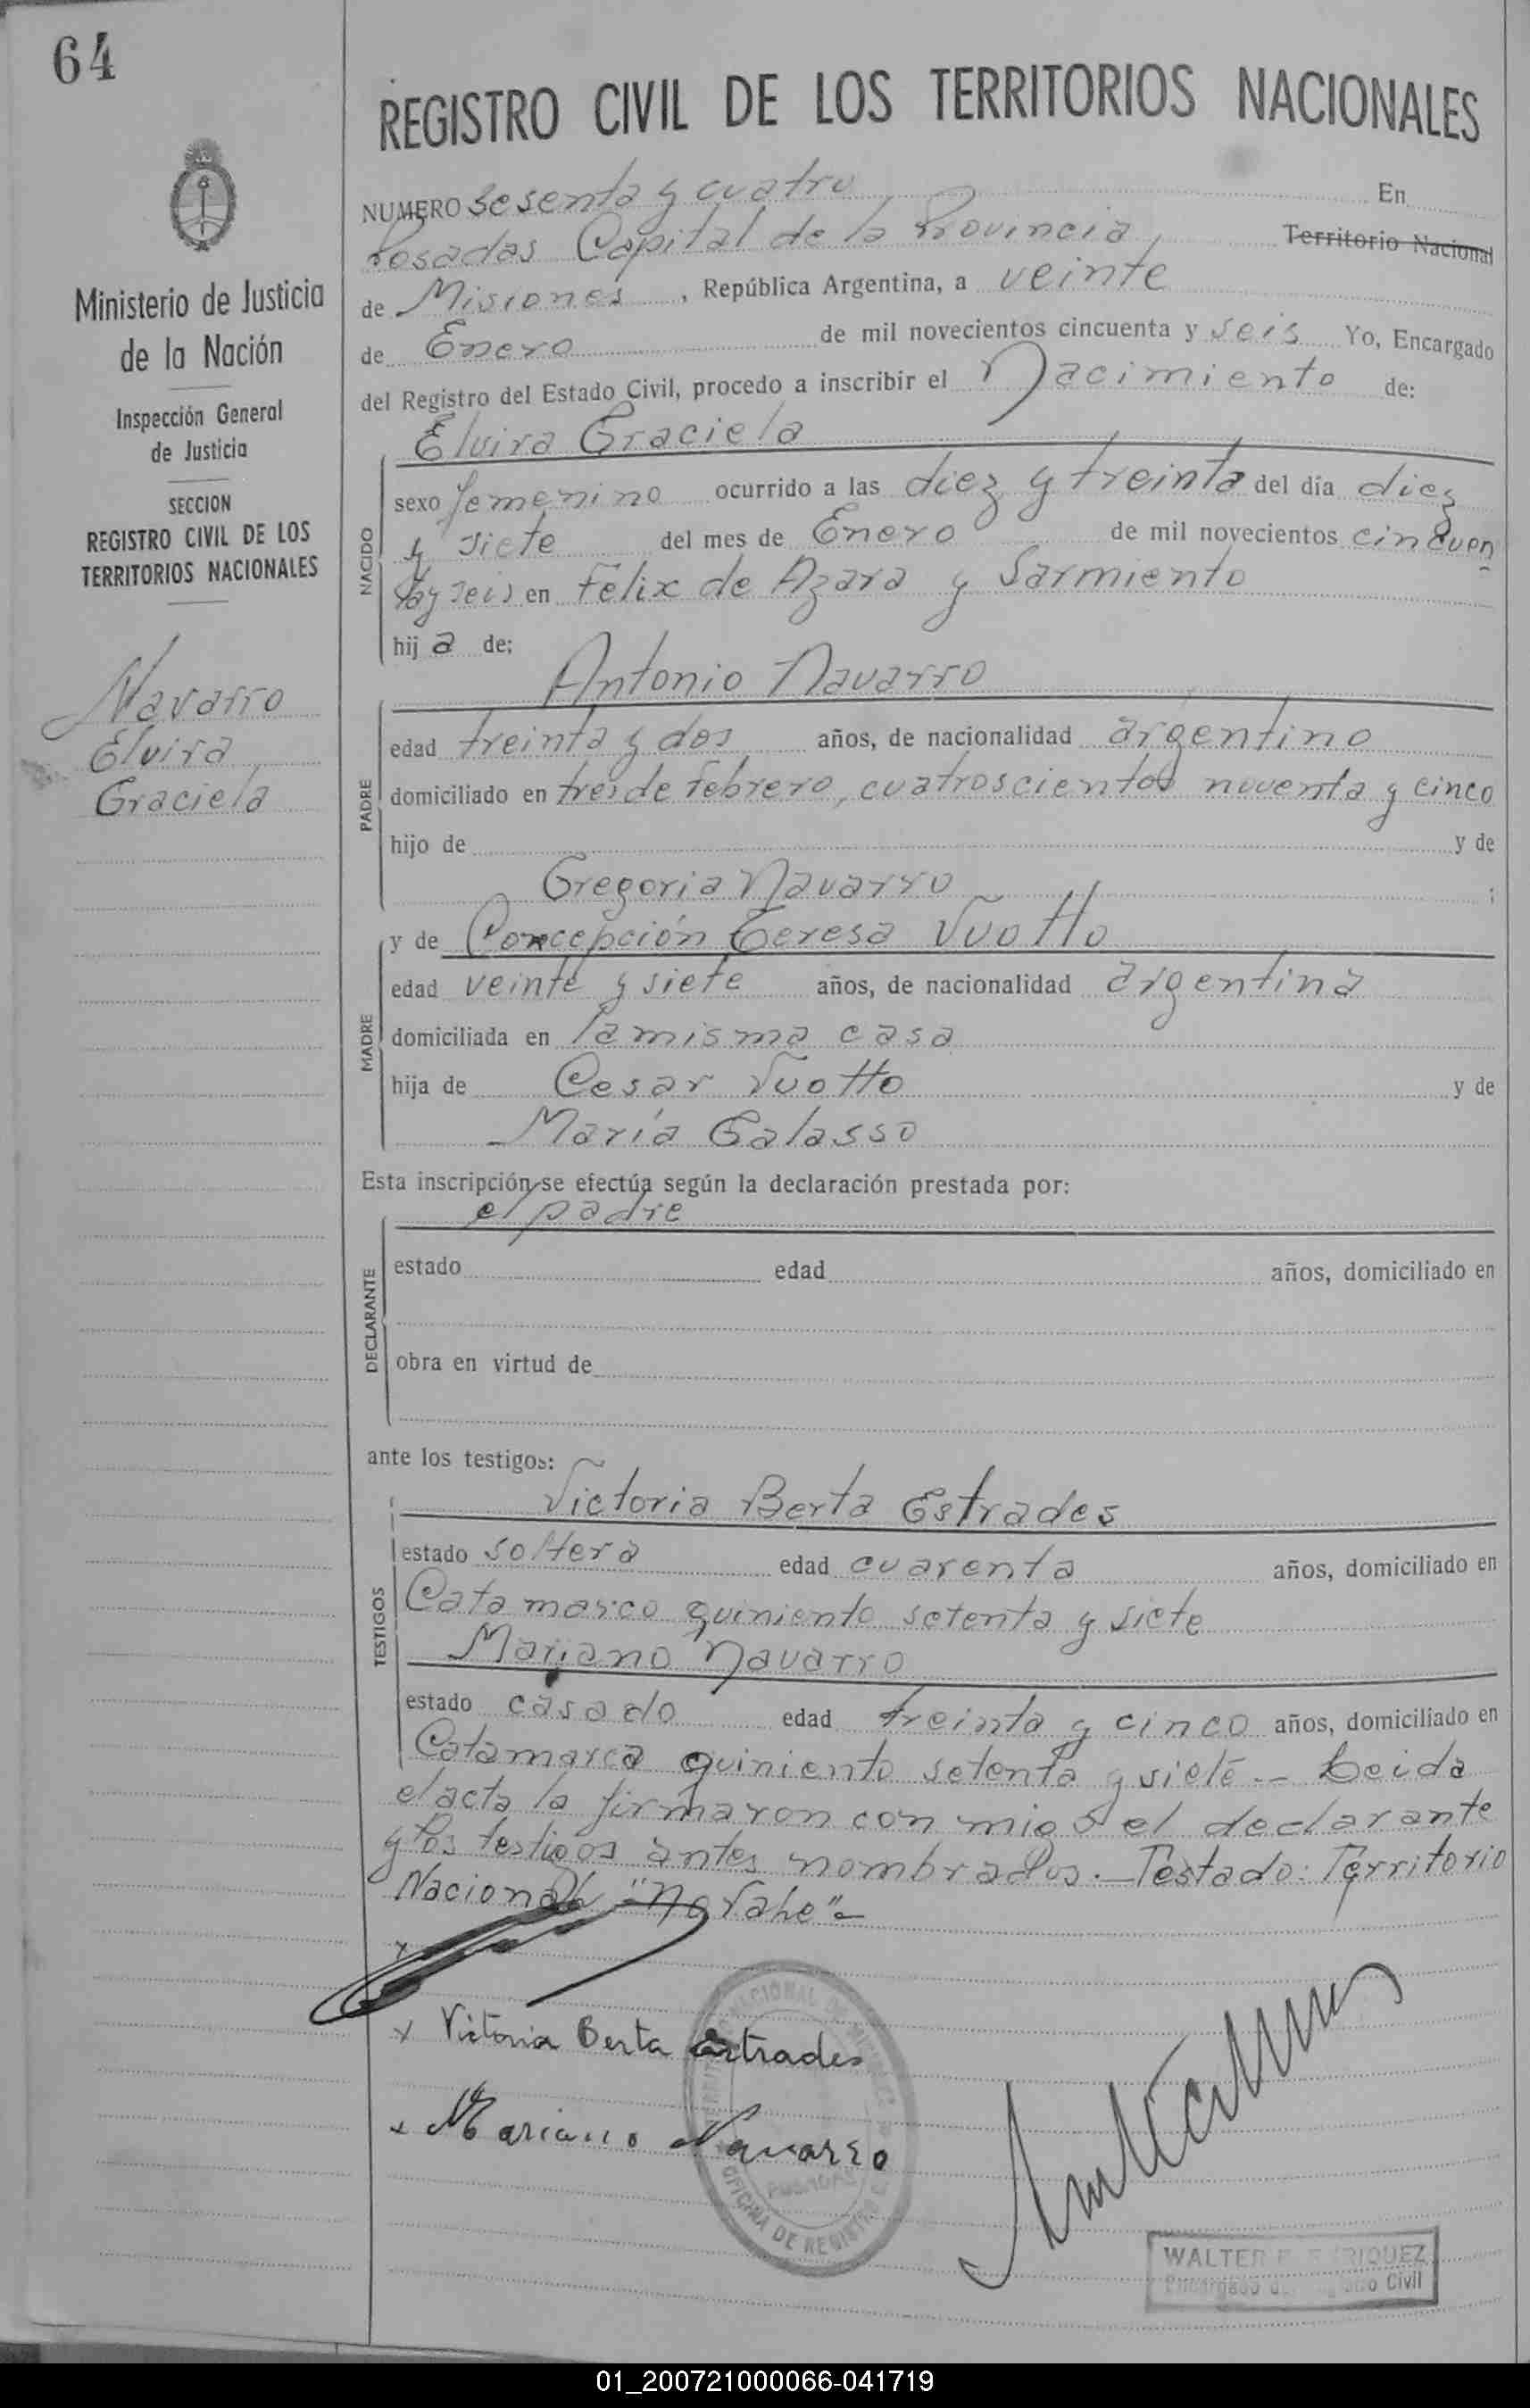 64
REGISTRO CIVIL DE LOS TERRITORIOS NACIONALES
Ministerio de Justicia
de la Nación
Inspección General
de Justicia
SECCION
REGISTRO CIVIL DE LOS
TERRITORIOS NACIONALES
Navarro
Elvira
Graciela
NUMERO Sesenta y cuatro En
Posadas Capital de la Provincia Territorio Nacional
de Misiones, República Argentina, a veinte
de Enero de mil novecientos cincuenta y seis Yo, Encargado
del Registro del Estado Civil, procedo a inscribir el Nacimiento de:
Elvira Graciela
NACIDO
sexo femenino ocurrido a las diez y treinta del día diez
y siete del mes de Enero de mil novecientos cincuen
ta y seis en Félix de Azara y Sarmiento
hij a de:
Antonio Navarro
PADRE
edad treinta y dos años, de nacionalidad argentino
domiciliado en tres de Febrero, cuatroscientos noventa y cinco
hijo de y de
Gregoria Navarro ;
y de Concepción Teresa Vuotto
MADRE
edad veinte y siete años, de nacionalidad argentina
domiciliada en la misma casa
hija de Cesar Vuotto y de
María Galasso
Esta inscripción se efectúa según la declaración prestada por:
el padre
DECLARANTE
estado edad años, domiciliado en
obra en virtud de
ante los testigos:
Victoria Berta Estrades
TESTIGOS
estado soltera edad cuarenta años, domiciliado en
Catamarca quiniento setenta y siete
Mariano Navarro
estado casado edad treinta y cinco años, domiciliado en
Catamarca quiniento setenta y siete -- Leida
el acta la firmaron con migo el declarante
y los testigos antes nombrados.- Testado: Territorio
Nacional "No Vale"-
x
x Victoria Berta Estrades
x Mariano Navarro
NACIONAL DE MISIONES
OFICINA DE REGISTRO
POSADAS
WALTER RIQUEZ
Encargado Civil
01_200721000066-041719